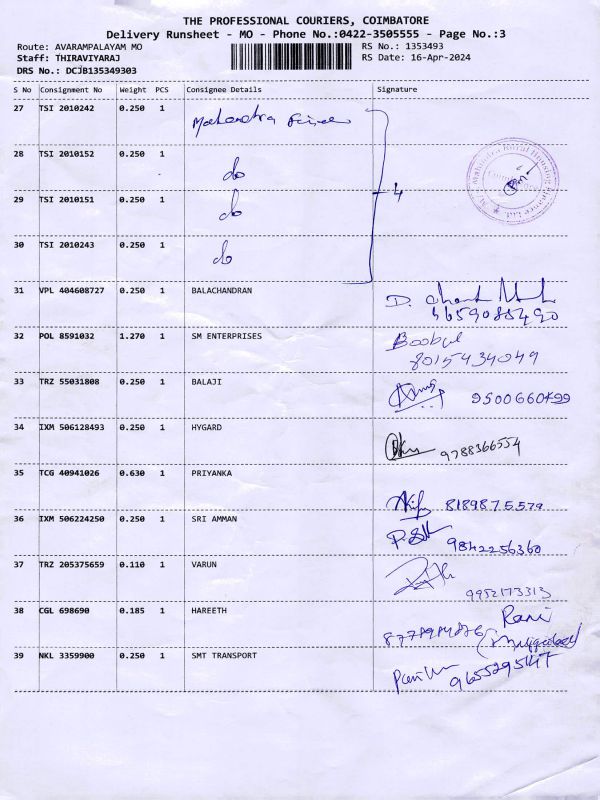 THE PROFESSIONAL COURIERS, COIMBATORE
Delivery Runsheet - MO - Phone No.:0422-3505555 - Page No.:3
Route: AVARAMPALAYAM MO RS No.: 1353493
Staff: THIRAVIYARAJ RS Date: 16-Apr-2024
DRS No.: DCJB135349303
S No Consignment No Weight PCS Consignee Details Signature
27 TSI 2010242 0.250 1 Mahendra
28 TSI 2010152 0.250 1 do
29 TSI 2010151 0.250 1 do
4
30 TSI 2010243 0.250 1 do
Mahindra Rural Housing Finance Ltd.
31 VPL 404608727 0.250 1 BALACHANDRAN D.
32 POL 8591032 1.270 1 SM ENTERPRISES
8015434049
33 TRZ 55031808 0.250 1 BALAJI
34 IXM 506128493 0.250 1 HYGARD
9788366554
35 TCG 40941026 0.630 1 PRIYANKA
8189875579
36 IXM 506224250 0.250 1 SRI AMMAN
9842256360
37 TRZ 205375659 0.110 1 VARUN
9952173313
38 CGL 698690 0.185 1 HAREETH Rani
39 NKL 3359900 0.250 1 SMT TRANSPORT
9655295147